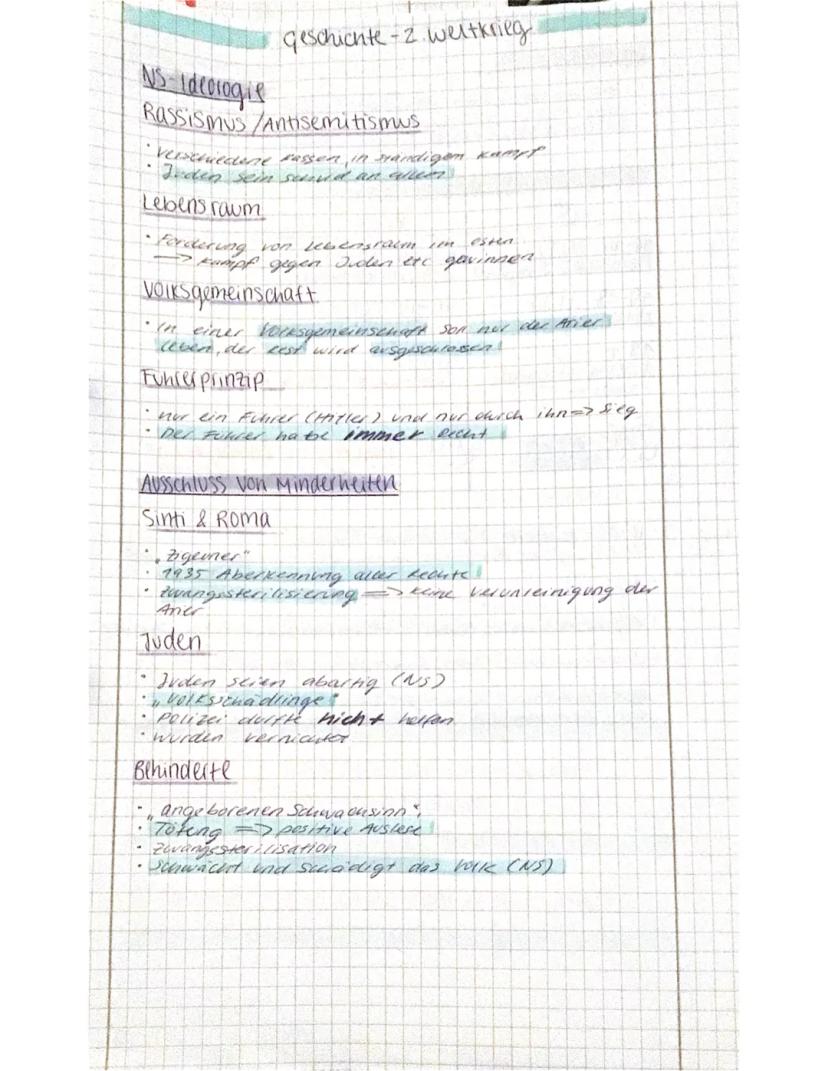 Geschichte - 2. Weltkrieg
NS-Ideologie
Rassismus/Antisemitismus
· Verschiedene Rassen, in ständigem Kampf
· Juden sein schuld an allem
Lebensraum
· Forderung von Lebensraum im Osten
→ Kampf gegen Juden etc gewinnen
Volksgemeinschaft
· In einer Volksgemeinschaft soll nur der Arier
leben, der Rest wird ausgeschlossen
Führerprinzip
· nur ein Führer (Hitler) und nur durch ihn => Sieg
· Der Führer habe immer Recht
Ausschluss von Minderheiten
Sinti & Roma
· „Zigeuner"
· 1935 Aberkennung aller Rechte
· Zwangssterilisierung => keine Verunreinigung der
Arier
Juden
· Juden seien abartig (NS)
· „Volksschädlinge"
· Polizei durfte nicht helfen
· wurden vernichtet
Behinderte
· „angeborenen Schwachsinn",
· Tötung => positive Auslese
· Zwangssterilisation
· Schwächt und Schädigt das Volk (NS)